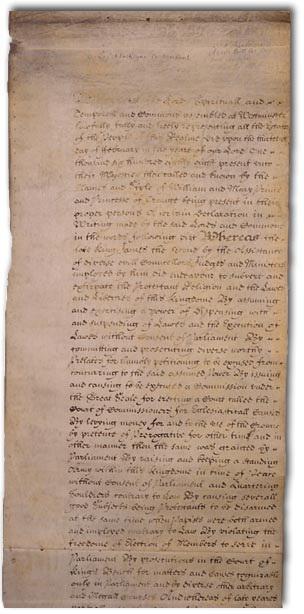 Lords Spirituall and
Temporall and Comons assembled at Westminster
lawfully fully and freely representing all the Estates
of the People of this Realme did upon the thirteenth
day of February in the yeare of our Lord One
thousand six hundred eighty eight present unto
their Majesties then called and knowne by the
Names and Stile of William and Mary Prince
and Princesse of Orange being present in their
proper persons a certaine Declaration in
Writing made by the said Lords and Comons
in the words following viz Whereas the
late King James the second by the Assistance
of diverse evill Councellors Judges and Ministers
imployed by him did endeavour to subvert and
extirpate the Protestant Religion and the Lawes
and Liberties of this Kingdome By assuming
and exercising a power of Dispensing with
and suspending of Lawes and the Execution of
Lawes without Consent of Parliament By
comitting and prosecuting diverse worthy
Prelates for humbly petitioning to be excused from
concurring to the said assumed Power By issuing
and causing to be executed a Comission under
the Great Seale for erecting a Court called the
Court of Comissioners for Eclesiasticall Causes
By levying money for and to the use of the Crowne
by pretence of Prerogative for other time and in
other manner than the same was granted by
Parliament By raising and keeping a standing
Army within this Kingdome in time of Peace
without Consent of Parliament and Quartering
Souldiers contrary to Law By causing severall
good Subjects being Protestants to be disarmed
at the same time when Papists were both armed
and imployed contrary to Law By violating the
freedome of Election of Members to serve in
Parliament By prosecutions in the Court of
Kings Bench for matters and causes cognizable
only in Parliament and by diverse other arbitrary
and illegall courses And whereas of late yeares